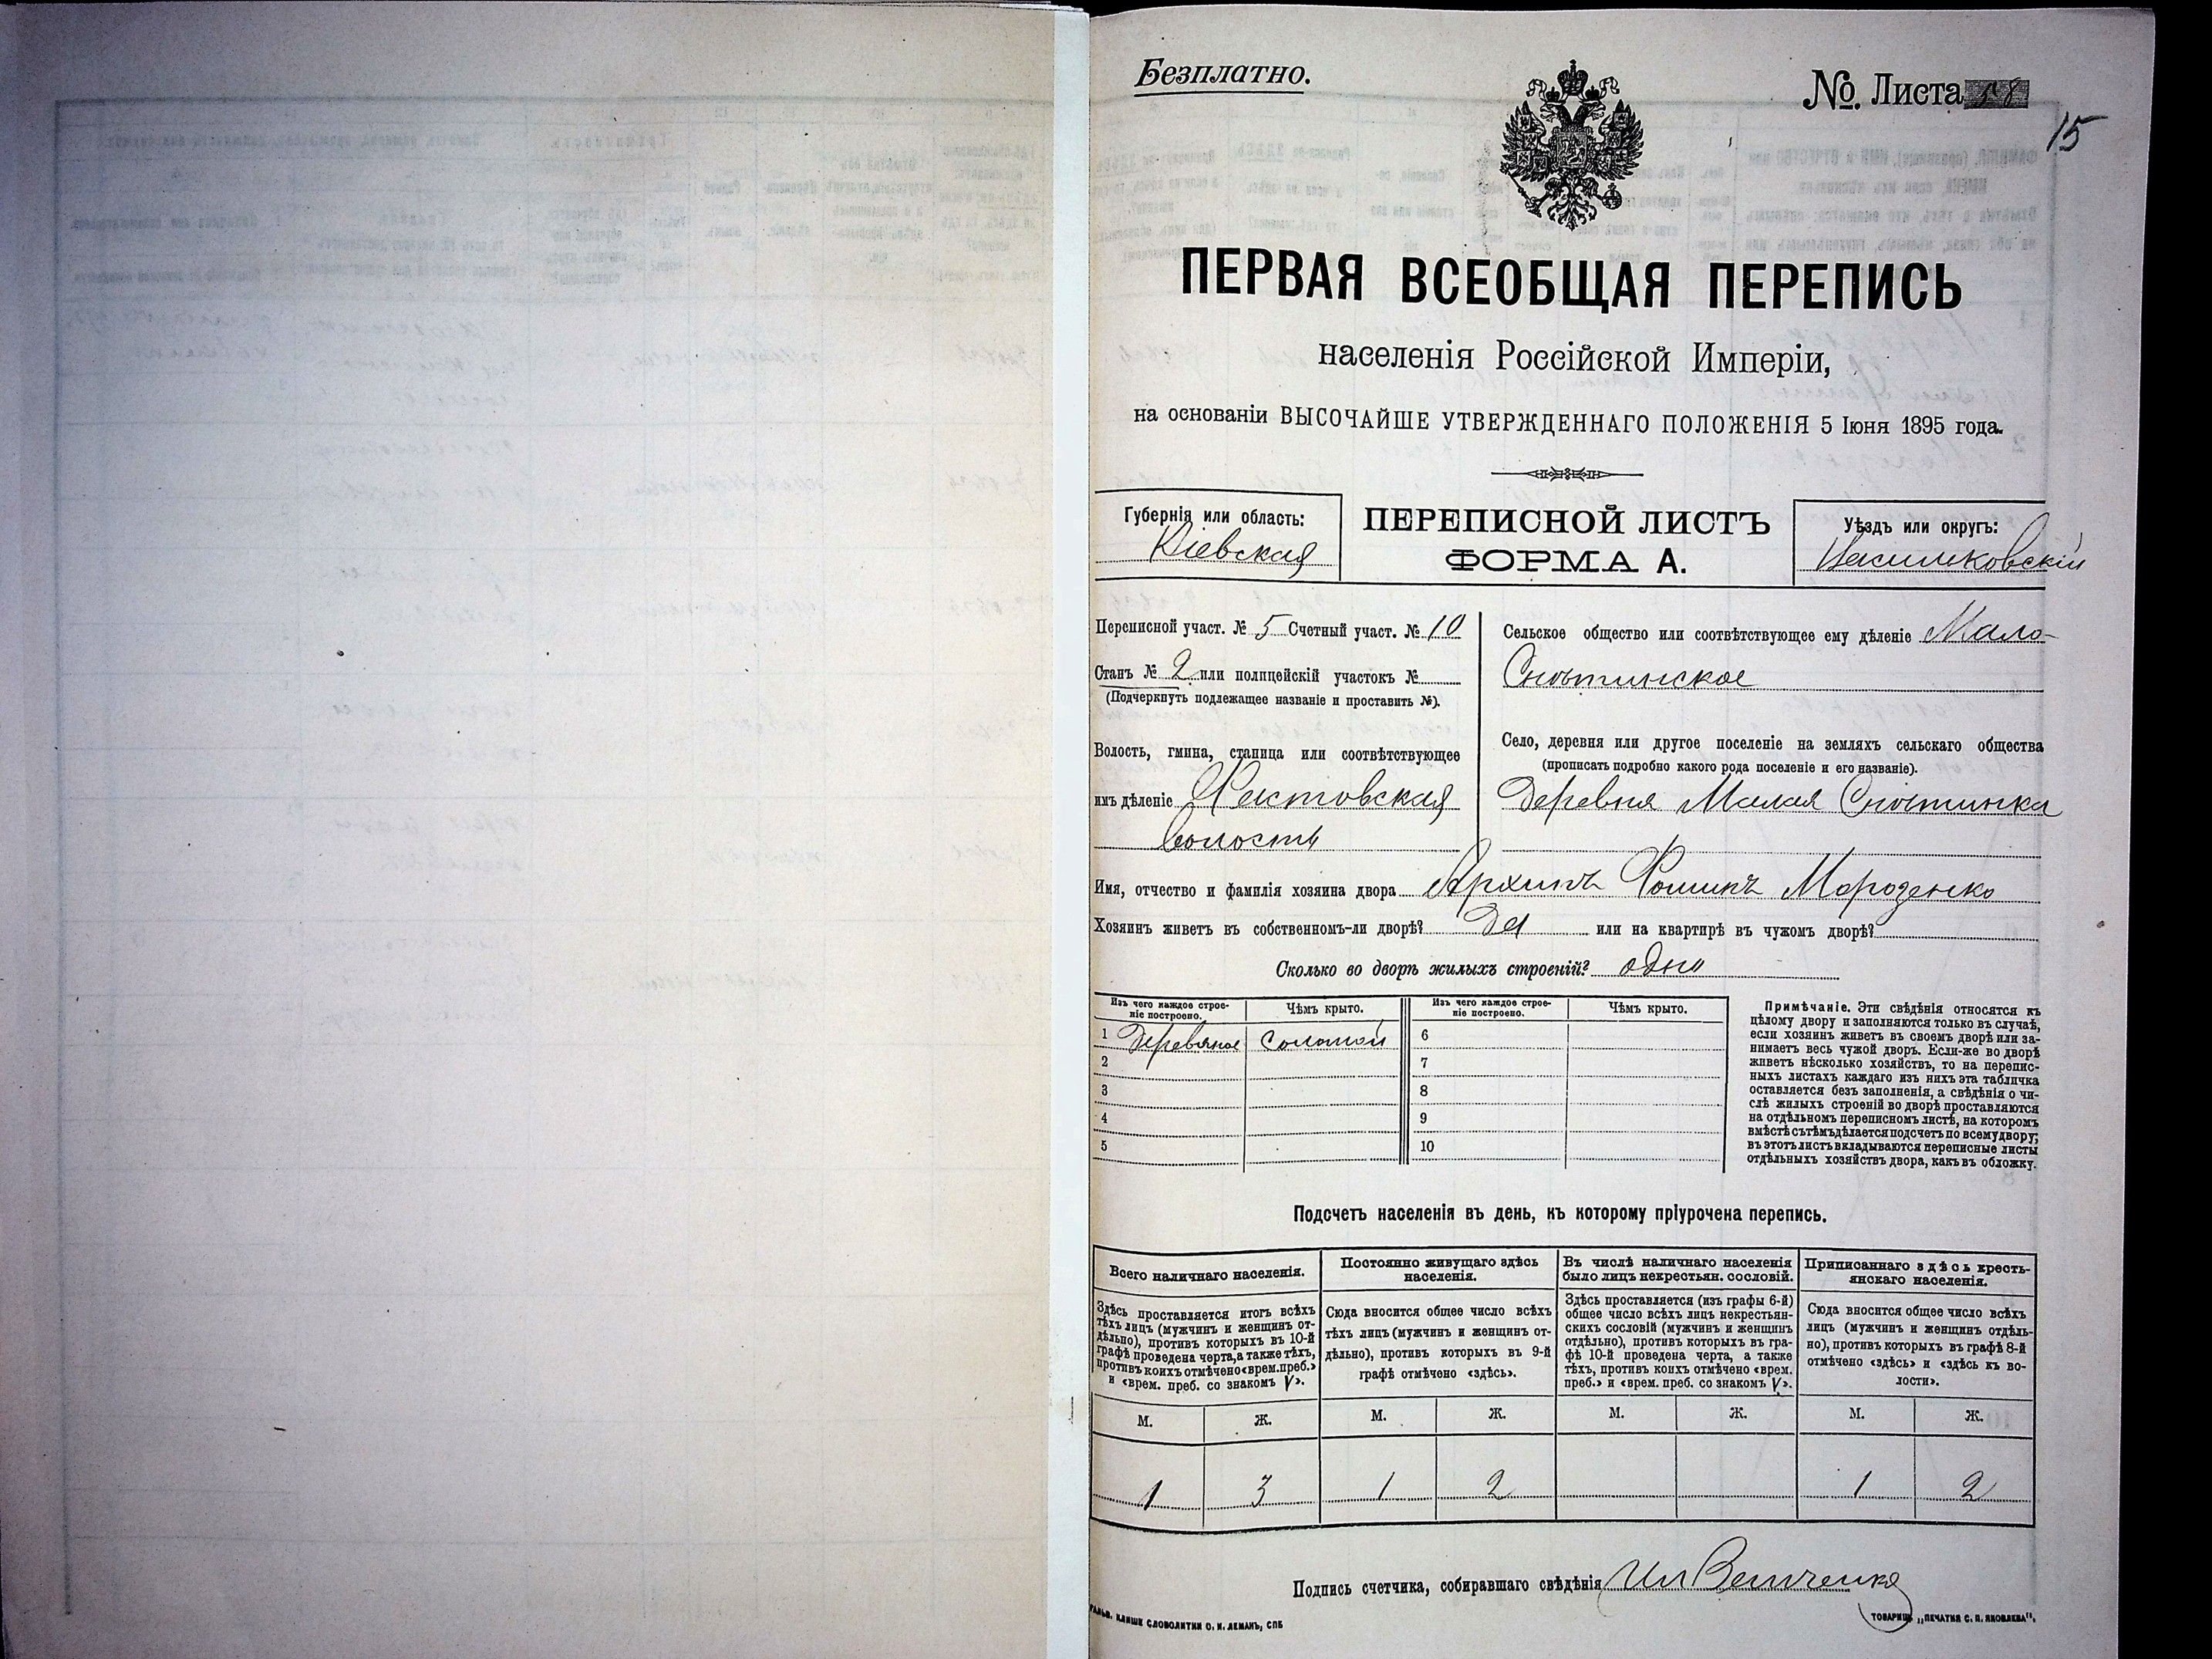 Безплатно.
№ Листа 58
15
ПЕРВАЯ ВСЕОБЩАЯ ПЕРЕПИСЬ
населенія Россійской Имперіи,
на основаніи ВЫСОЧАЙШЕ УТВЕРЖДЕННАГО ПОЛОЖЕНІЯ 5 Іюня 1895 года.
Губернія или область:
Кіевская
ПЕРЕПИСНОЙ ЛИСТЪ
ФОРМА А.
Уѣздъ или округъ:
Васильковскій
Переписной участ. № 5 Счетный участ. № 10
Станъ № 2 или полицейскій участокъ №
(Подчеркнуть подлежащее названіе и проставить №).
Волость, гмина, станица или соотвѣтствующее
имъ дѣленіе Хвастовская
волость
Сельское общество или соотвѣтствующее ему дѣленіе Мало-
Снѣтинское
Село, деревня или другое поселеніе на земляхъ сельскаго общества
(прописать подробно какого рода поселеніе и его названіе).
Деревня Малая Снѣтинка
Имя, отчество и фамилія хозяина двора Архипъ Фоминъ Морозенко
Хозяинъ живетъ въ собственномъ-ли дворѣ? Да или на квартирѣ въ чужомъ дворѣ?
Сколько во дворѣ жилыхъ строеній? одно
Изъ чего каждое строе-
ніе построено.
Чѣмъ крыто.
Изъ чего каждое строе-
ніе построено.
Чѣмъ крыто.
1 Деревяное соломой 6
2 7
3 8
4 9
5 10
Примѣчаніе. Эти свѣдѣнія относятся къ
цѣлому двору и заполняются только въ случаѣ,
если хозяинъ живетъ въ своемъ дворѣ или за-
нимаетъ весь чужой дворъ. Если-же во дворѣ
живетъ нѣсколько хозяйствъ, то на перепис-
ныхъ листахъ каждаго изъ нихъ эта табличка
оставляется безъ заполненія, а свѣдѣнія о чи-
слѣ жилыхъ строеній во дворѣ проставляются
на отдѣльномъ переписномъ листѣ, на которомъ
вмѣстѣ съ тѣмъ дѣлается подсчетъ по всему двору;
въ этотъ листъ вкладываются переписные листы
отдѣльныхъ хозяйствъ двора, какъ въ обложку.
Подсчетъ населенія въ день, къ которому пріурочена перепись.
Всего наличнаго населенія.
Здѣсь проставляется итогъ всѣхъ
тѣхъ лицъ (мужчинъ и женщинъ от-
дѣльно), противъ которыхъ въ 10-й
графѣ проведена черта, а также тѣхъ,
противъ коихъ отмѣчено «врем. преб.»
и «врем. преб. со знакомъ V».
Постоянно живущаго здѣсь
населенія.
Сюда вносится общее число всѣхъ
тѣхъ лицъ (мужчинъ и женщинъ от-
дѣльно), противъ которыхъ въ 9-й
графѣ отмѣчено «здѣсь».
Въ числѣ наличнаго населенія
было лицъ некрестьян. сословій.
Здѣсь проставляется (изъ графы 6-й)
общее число всѣхъ лицъ некрестьян-
скихъ сословій (мужчинъ и женщинъ
отдѣльно), противъ которыхъ въ гра-
фѣ 10-й проведена черта, а также
тѣхъ, противъ коихъ отмѣчено «врем.
преб.» и «врем. преб. со знакомъ V».
Приписаннаго здѣсь кресть-
янскаго населенія.
Сюда вносится общее число всѣхъ
лицъ (мужчинъ и женщинъ отдѣль-
но), противъ которыхъ въ графѣ 8-й
отмѣчено «здѣсь» и «здѣсь къ во-
лости».
М. Ж. М. Ж. М. Ж. М. Ж.
1 3 1 2 1 2
Подпись счетчика, собиравшаго свѣдѣнія
КЛИШЕ СЛОВОЛИТНИ О. И. ЛЕМАНЪ, СПБ
ТОВАРИЩ. „ПЕЧАТНЯ С. П. ЯКОВЛЕВА“.